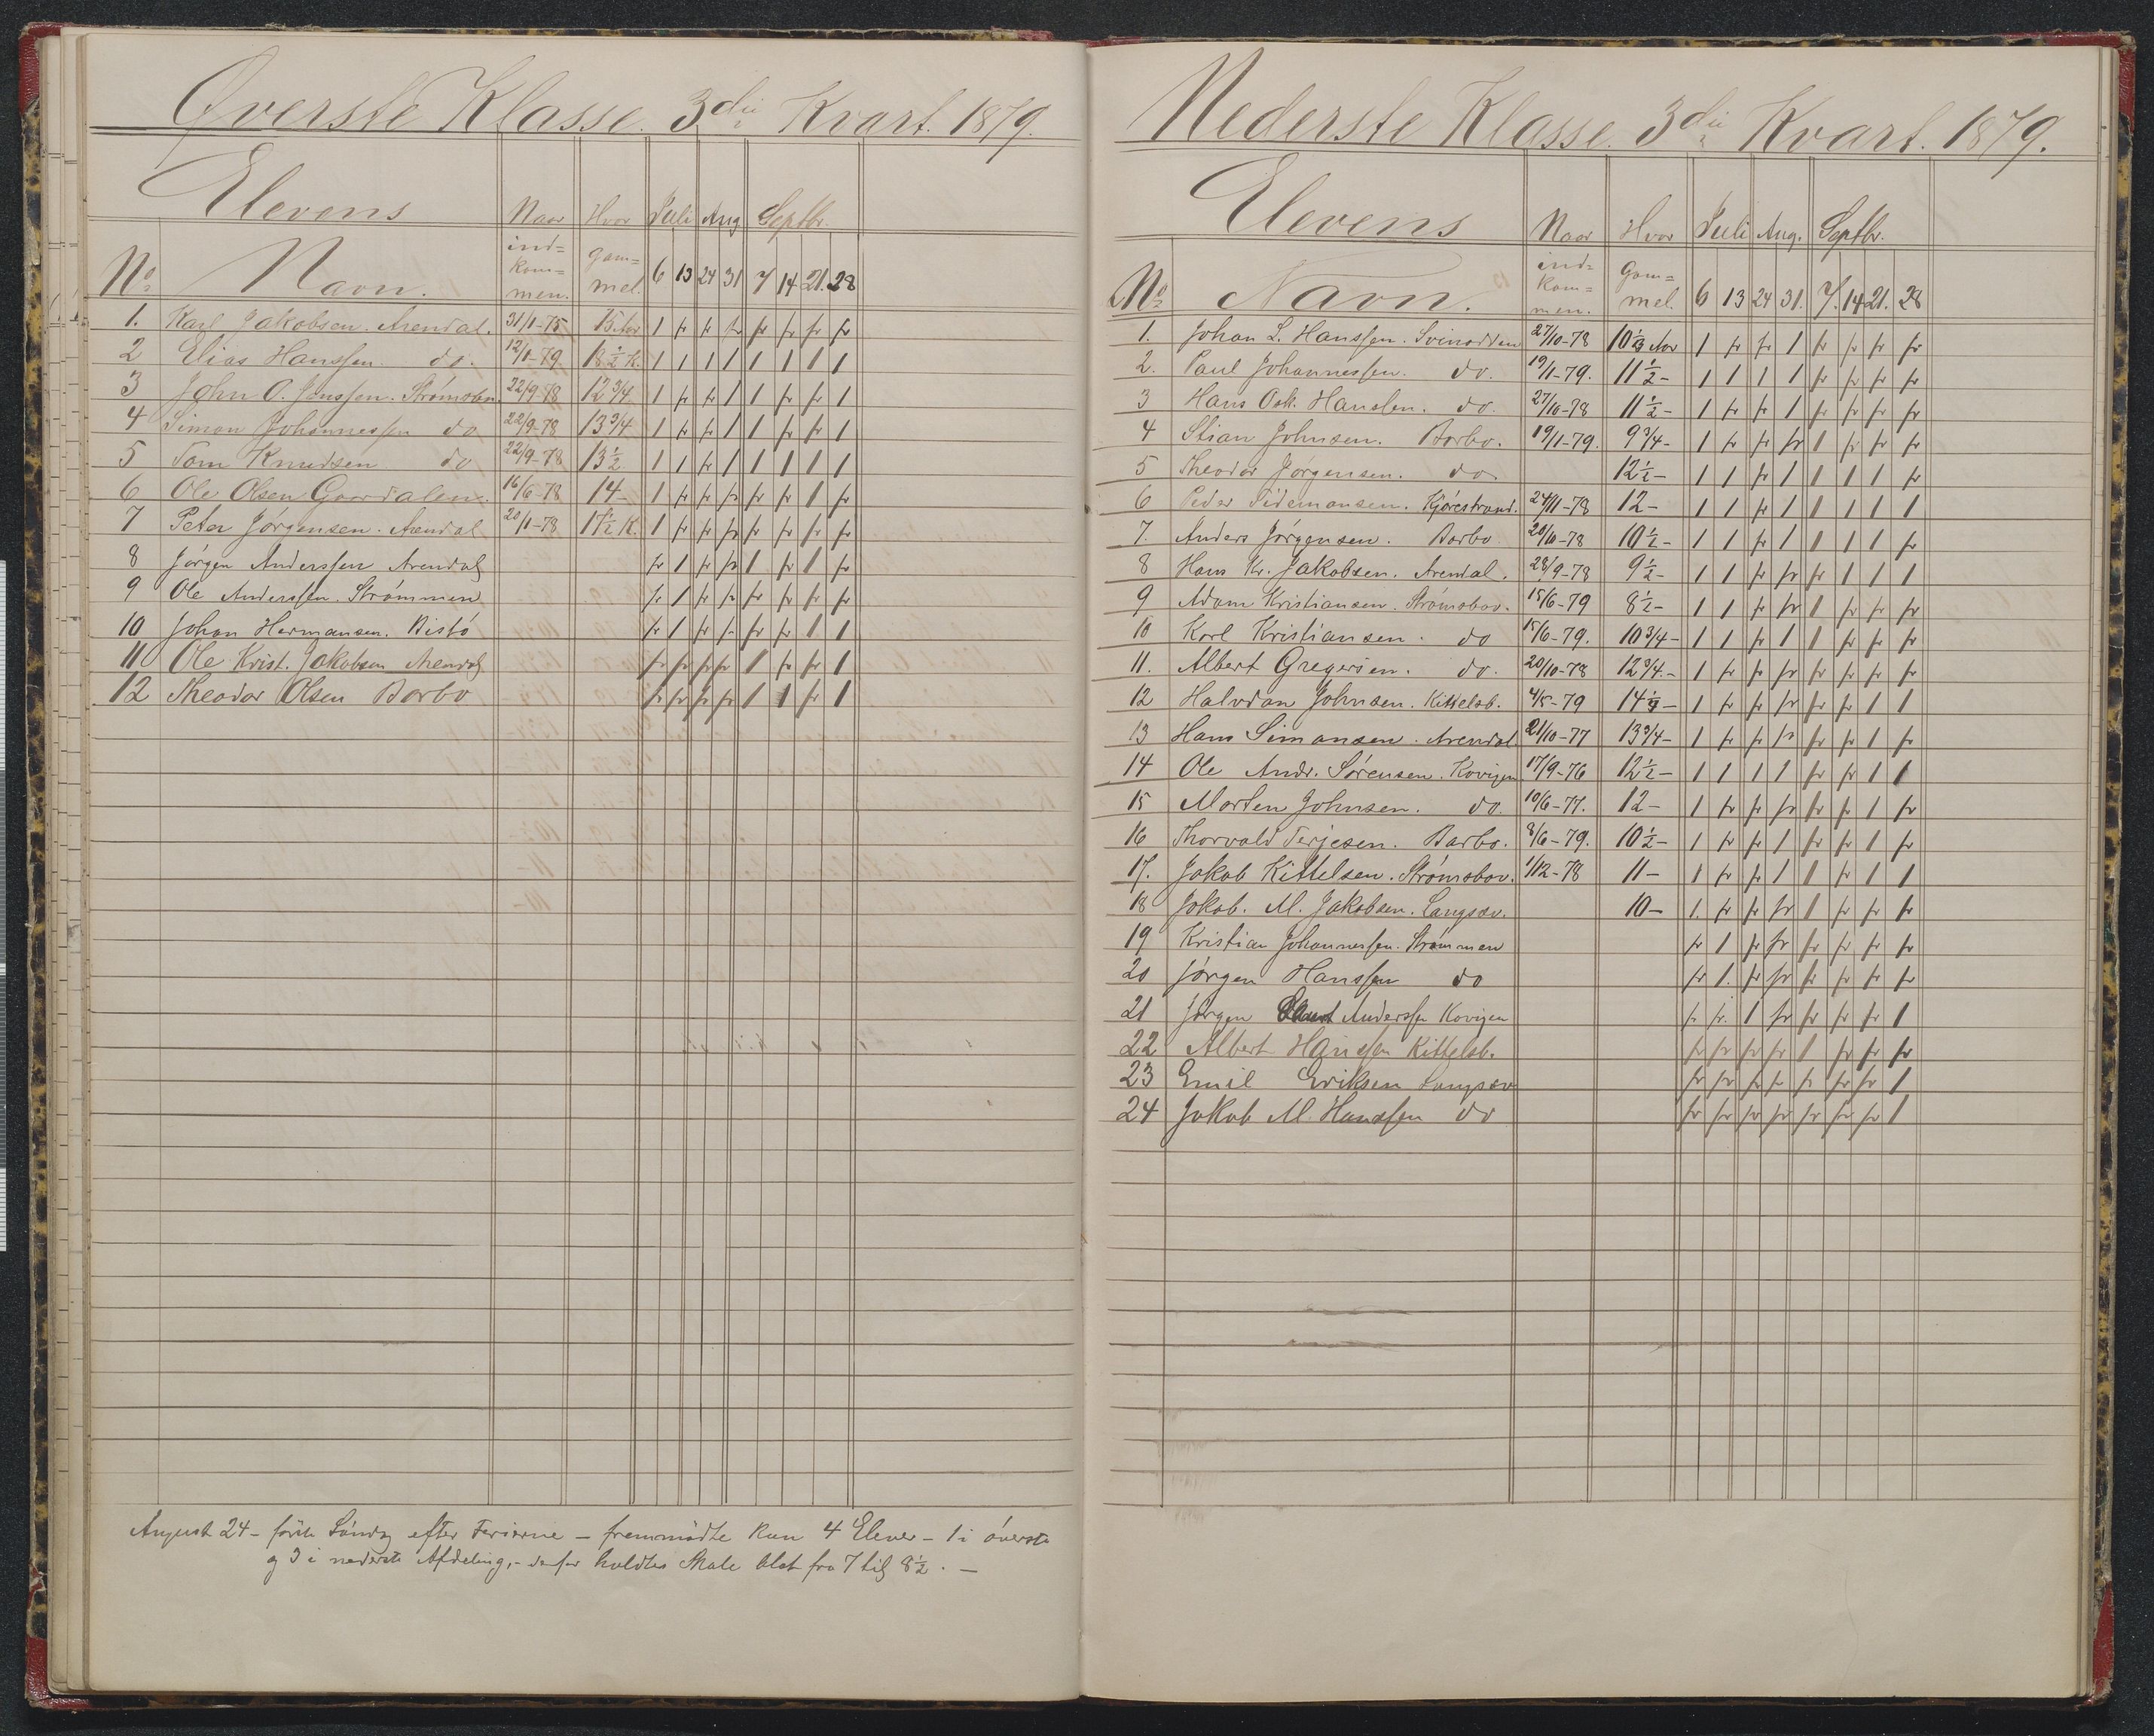 Øverste Klasse. 3die Kvart. 1879.
Elevens Naar Hvor Juli Aug Septbr.
No Navn. ind= kom= men. gam= mel. 6 13 24 31 7 14 21. 28
1. Karl Jakobsen. Arendal. 31/1-75 15 Aar 1 fr fr fr fr fr fr fr
2 Elias Hanssen. do. 12/1-79 18½ K. 1 1 1 1 1 1 1 1
3 John O. Jenssen. Strømsbo. 22/9-78 12 3/4 1 fr fr 1 1 fr fr 1
4 Simon Johannessen do 22/9-78 13 3/4 1 fr fr 1 1 fr fr 1
5 Tom Knudsen do 22/9-78 13½ 1 1 fr 1 1 1 1 1
6 Ole Olsen Gaardalen. 16/6-78 14- 1 fr fr fr fr fr 1 fr
7 Peter Jørgensen. Arendal 20/1-78 17½ K. 1 fr fr fr fr fr fr fr
8 Jørgen Anderssen Arendal fr 1 fr fr 1 fr 1 fr
9 Ole Anderssen. Strømmen fr 1 fr fr fr fr fr fr
10 Johan Hermansen. Bistø fr 1 fr fr fr fr 1 1
11 Ole Krist. Jakobsen Arendal fr fr fr fr 1 fr fr 1
12 Theodor Olsen Barbo fr fr fr fr 1 1 fr 1
August 24 - første Søndag efter Ferierne - fremmødte kun 4 Elever - 1 i øverste
og 3 i nederste Afdeling, - derfor holdtes Skole blot fra 7 til 8½. -
Nederste Klasse. 3die Kvart. 1879.
Elevens Naar Hvor Juli Aug. Septbr.
No Navn. ind= kom= men. Gam= mel. 6 13 24 31. 7. 14 21. 28
1. Johan L. Hanssen. Svinodden 27/10-78 10½ Aar 1 fr fr 1 fr fr fr fr
2. Paul Johannessen. do. 19/1-79. 11½- 1 1 1 1 fr fr fr fr
3 Hans Osk. Hanssen. do. 27/10-78 11½- 1 fr fr 1 fr fr fr fr
4 Stian Johnsen. Barbo. 19/1-79. 9 3/4- 1 fr fr fr 1 fr fr fr
5 Theodor Jørgensen. do. 12½- 1 1 fr 1 1 1 1 fr
6 Peder Tidemansen. Kjørestrand. 24/11-78 12- 1 1 fr 1 1 1 1 1
7. Anders Jørgensen. Barbo 20/10-78 10½- 1 1 fr 1 1 1 1 fr
8 Hans Kr. Jakobsen. Arendal. 28/9-78 9½- 1 1 fr fr fr 1 1 1
9 Adam Kristiansen. Strømsbo. 15/6-79 8½- 1 1 fr fr 1 fr fr fr
10 Karl Kristiansen. do 15/6-79. 10 3/4- 1 1 fr 1 1 fr fr fr
11. Albert Gregersen. do. 20/10-78 12 3/4.- 1 fr fr fr fr fr fr fr
12 Halvdan Johnsen. Kittelsb. 4/5-79 14½- 1 fr fr fr fr fr 1 1
13 Hans Simonsen. Arendal. 21/10-77 13 3/4- 1 fr fr fr fr fr 1 fr
14 Ole Andr. Sørensen. Kovigen 17/9-76 12½- 1 1 1 1 fr fr 1 1
15 Morten Johnsen. do. 10/6-77. 12- 1 fr fr fr fr fr 1 fr
16 Thorvald Terjesen. Barbo. 8/6-79. 10½- 1 fr fr 1 fr fr 1 fr
17. Jakob Kittelsen. Strømsbo. 1/12-78 11- 1 fr fr 1 1 fr 1 1
18 Jakob. M. Jakobsen. Langsæv. 10- 1. fr fr fr 1 fr fr fr
19 Kristian Johannessen. Strømmen fr 1 fr fr fr fr fr fr
20 Jørgen Hanssen do fr 1. fr fr fr fr fr fr
21 Jørgen Anderssen Kovigen fr fr. 1 fr fr fr fr 1
22 Albert Hanssen Kittelsb. fr fr fr fr 1 fr fr fr
23 Emil Eriksen Langsæv fr fr fr fr fr fr fr 1
24 Jakob M. Hanssen do fr fr fr fr fr fr fr 1